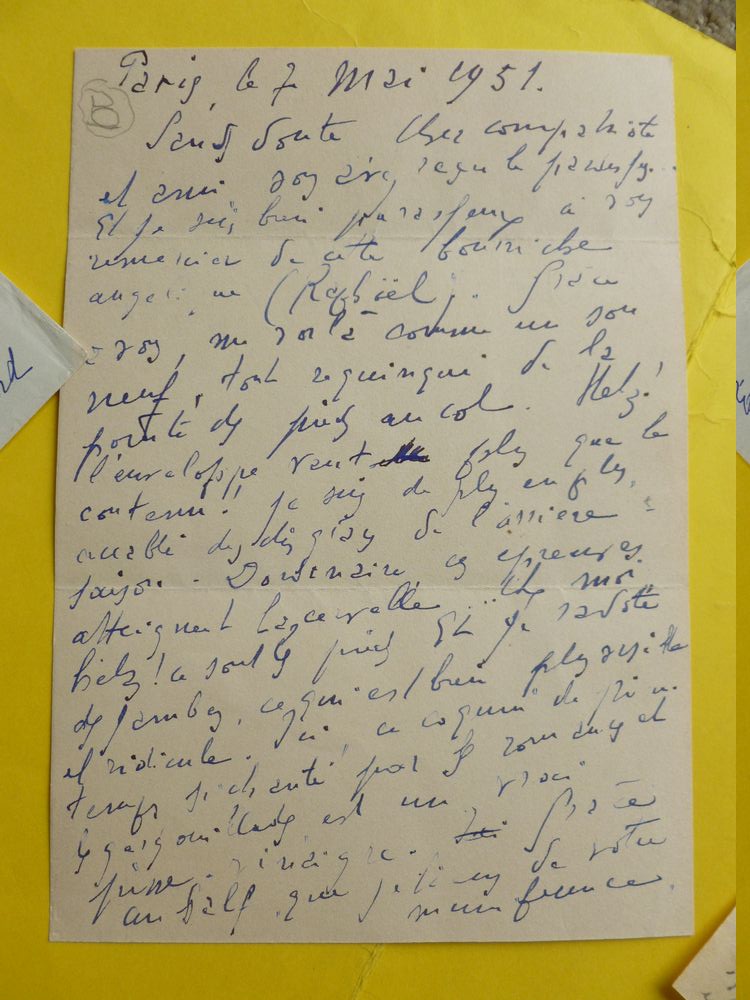 Paris, le 7 Mai 1951.
B
Sans doute cher compatriote
et ami vous avez reçu le
Et je suis bien à vous
remercier de cette bourriche
angélique (Raphaël). Grâce
à vous, me voilà comme un sou
neuf, tout requinqué de la
pointe des pieds au col. Hélas!
l'enveloppe vaut plus que le
contenu! Je suis de plus en plus
accablé des disgrâces de l'arrière
saison. D'ordinaire ces épreuves
atteignent la cervelle. Chez moi
hélas! ce sont les pieds Et je radote
des jambes, ce qui est bien plus visible
et ridicule. Ici, ce coquin de prin
temps si chanté par les romances et
les gargouillades est un vrai
pisse-vinaigre. Grâce
au que je tiens de votre
munificence.